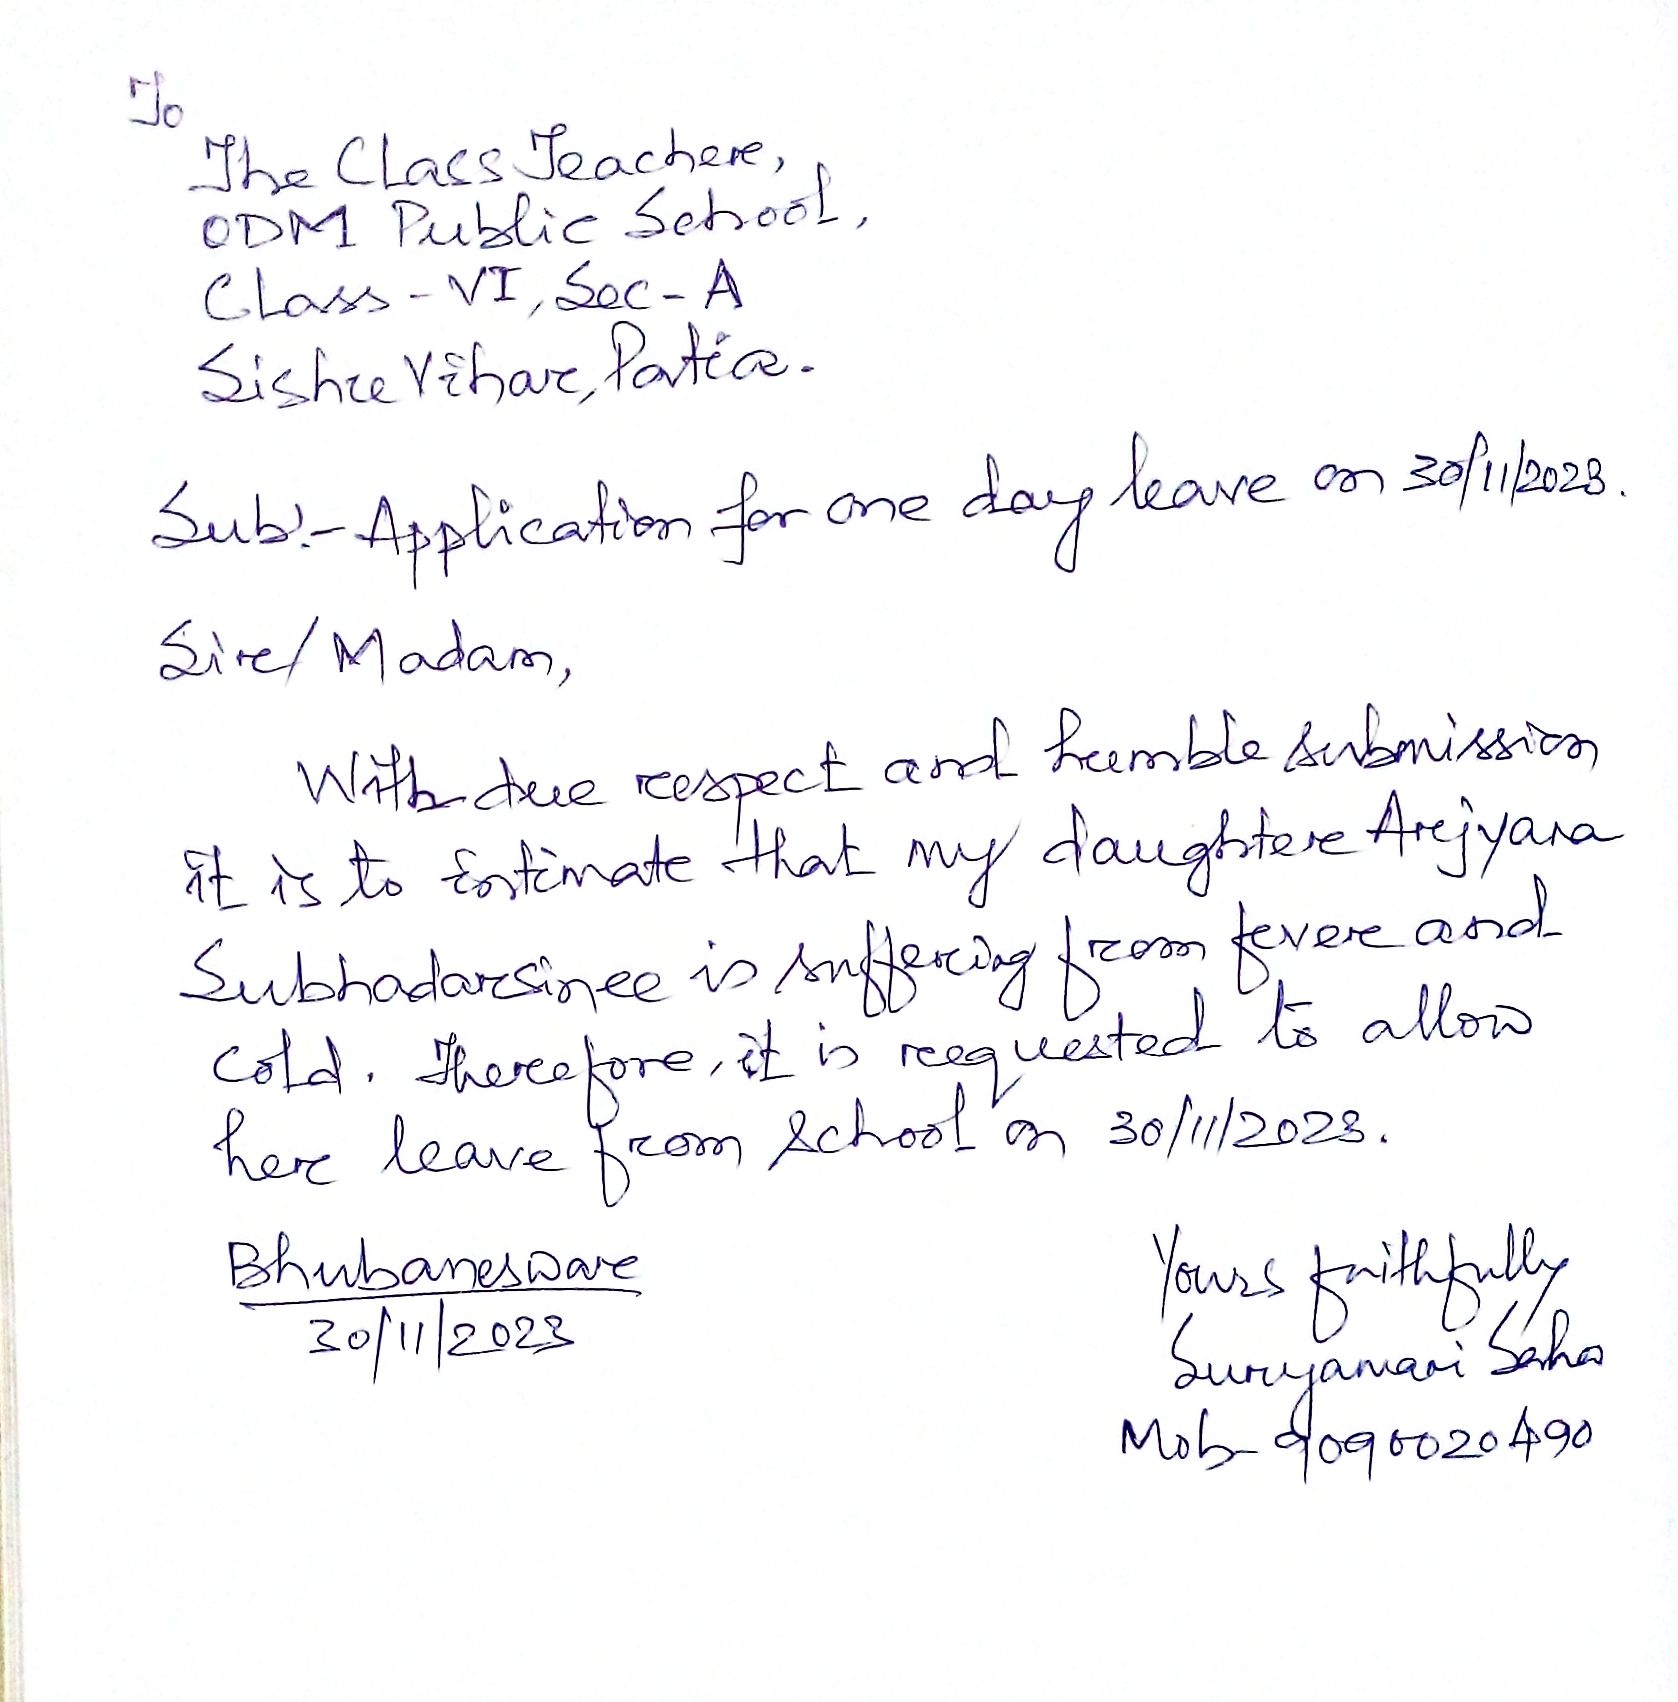 To
The Class Teacher,
ODM Public School,
Class - VI, Sec - A
Sishu Vihar, Patia.
Sub:- Application for one day leave on 30/11/2023.
Sir/Madam,
With due respect and humble submission
it is to intimate that my daughter Arjyara
Subhadarsinee is suffering from fever and
cold. Therefore, it is requested to allow
her leave from school on 30/11/2023.
Bhubaneswar
30/11/2023
Yours faithfully
Suryamani Sahu
Mob- 9090020490